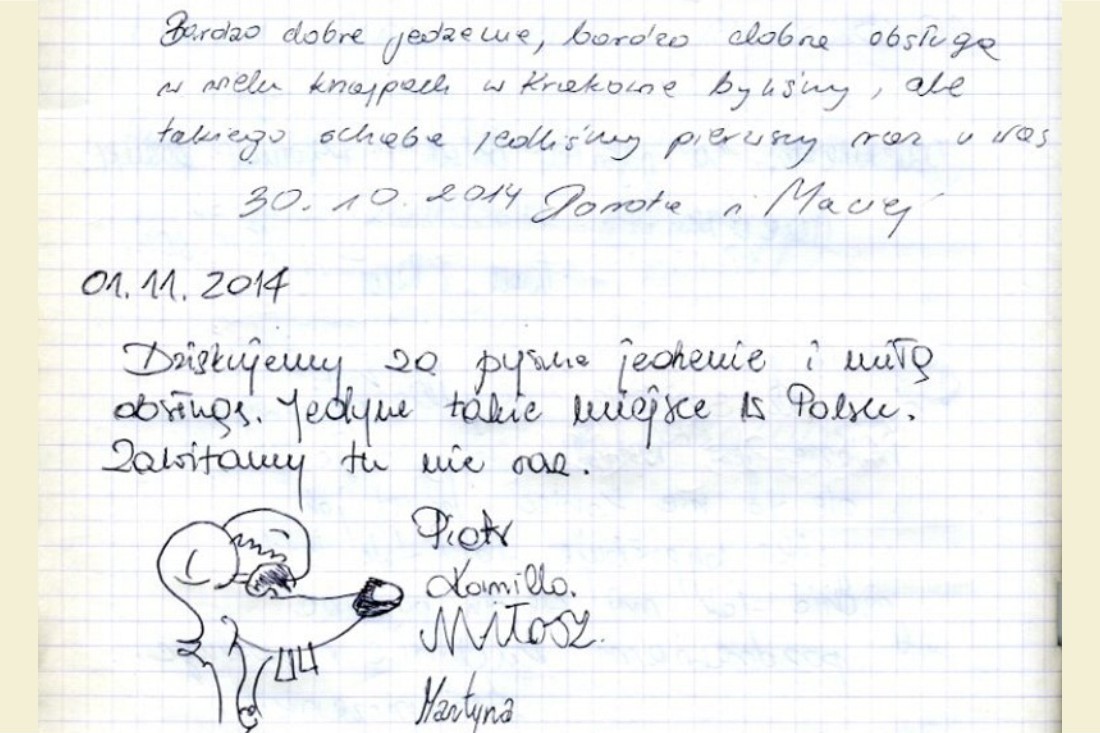 Bardzo dobre jedzenie, bardzo dobra obsługa
w wielu knajpach w Krakowie byliśmy, ale
takiego schaba jedliśmy pierwszy raz u was
30.10.2014 Dorota i Maciej
01.11.2014
Dziękujemy za pyszne jedzenie i miłą
obsługę. Jedyne takie miejsce w Polsce.
Zawitamy tu nie raz.
Piotr
Kamilla.
Miłosz.
Martyna